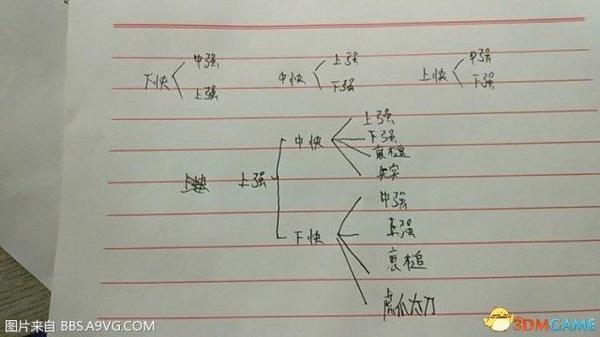 下快 中强 上强
中快 上强 下强
上快 中强 下强
上强
中快
上强
下强
裹槌
下快
中强
上强
裹槌
虎爪太刀
图片来自 BBS.A9VG.COM
3DMGAME